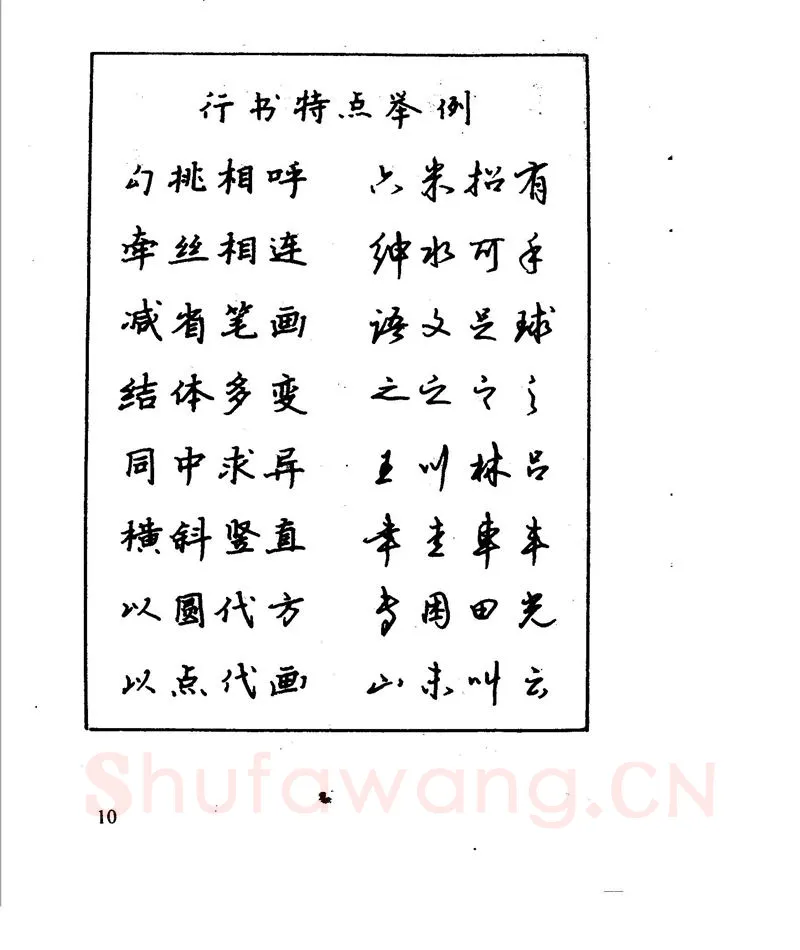 行书特点举例
幻挑相呼 六米招有
牵丝相连 绅水可手
减省笔画 语文足球
结体多变 之之之之
同中求异 王川林吕
横斜竖直 幸圭車车
以圆代方 当困田光
以点代画 山未叫云
Shufawang.CN
10